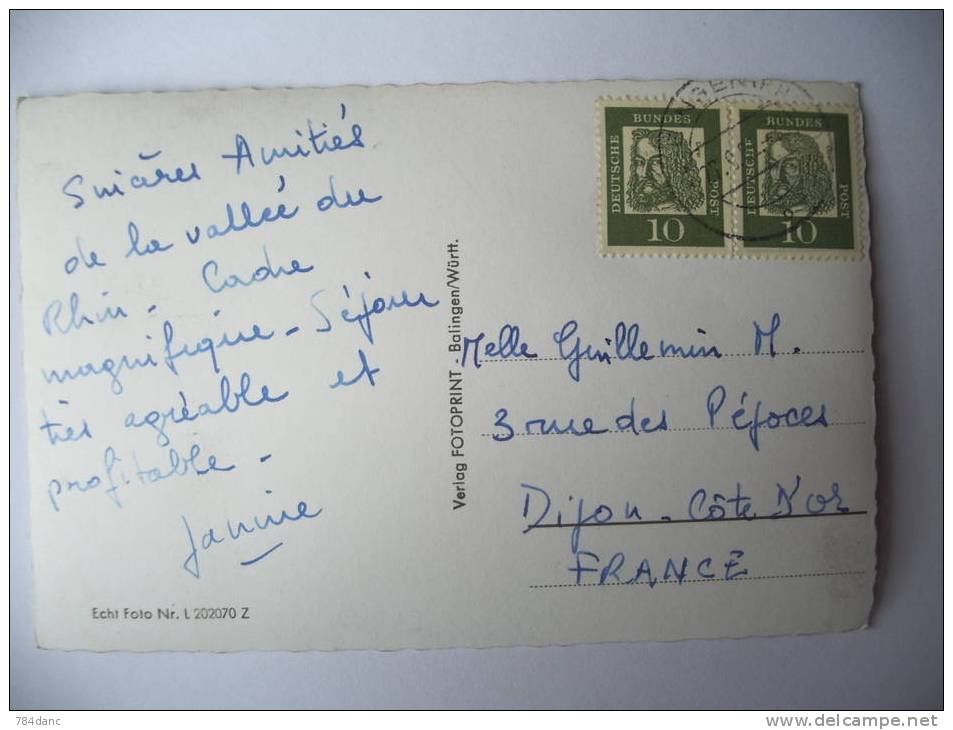 Sincères Amitiés
de la vallée du
Rhin - Cadre
magnifique - Séjour
très agréable et
profitable -
Janine
Echt Foto Nr. L 202070 Z
Verlag FOTOPRINT - Balingen/Württ.
DEUTSCHE BUNDES POST
10
DEUTSCHE BUNDES POST
10
Melle Guillemin M.
3 rue des Péjoces
Dijon - Côte d'Or
FRANCE
784danc
www.delcampe.net